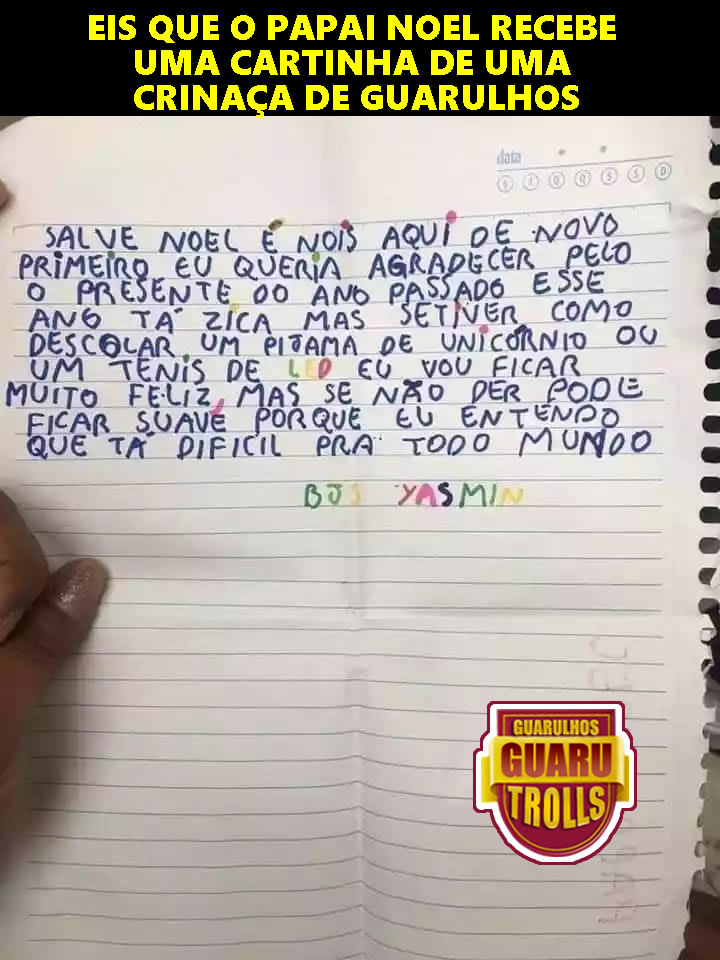 EIS QUE O PAPAI NOEL RECEBE
UMA CARTINHA DE UMA
CRINAÇA DE GUARULHOS
data
S T Q Q S S D
SALVE NOEL É NOIS AQUI DE NOVO
PRIMEIRO EU QUERIA AGRADECER PELO
O PRESENTE DO ANO PASSADO ESSE
ANO TÁ ZICA MAS SETIVER COMO
DESCOLAR UM PIJAMA DE UNICÔRNIO OU
UM TENIS DE LED EU VOU FICAR
MUITO FELIZ, MAS SE NÃO DER PODE
FICAR SUAVE PORQUE EU ENTENDO
QUE TÁ DIFICIL PRA TODO MUNDO
BJS YASMIN
GUARULHOS
GUARU
TROLLS